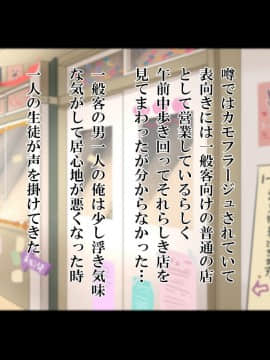 噂ではカモフラージュされていて
表向きには一般客向けの普通の店
として営業しているらしく
午前中歩き回ってそれらしき店を
見てまわったが分からなかった…
一般客の男一人の俺は少し浮き気味
な気がして居心地が悪くなった時
一人の生徒が声を掛けてきた